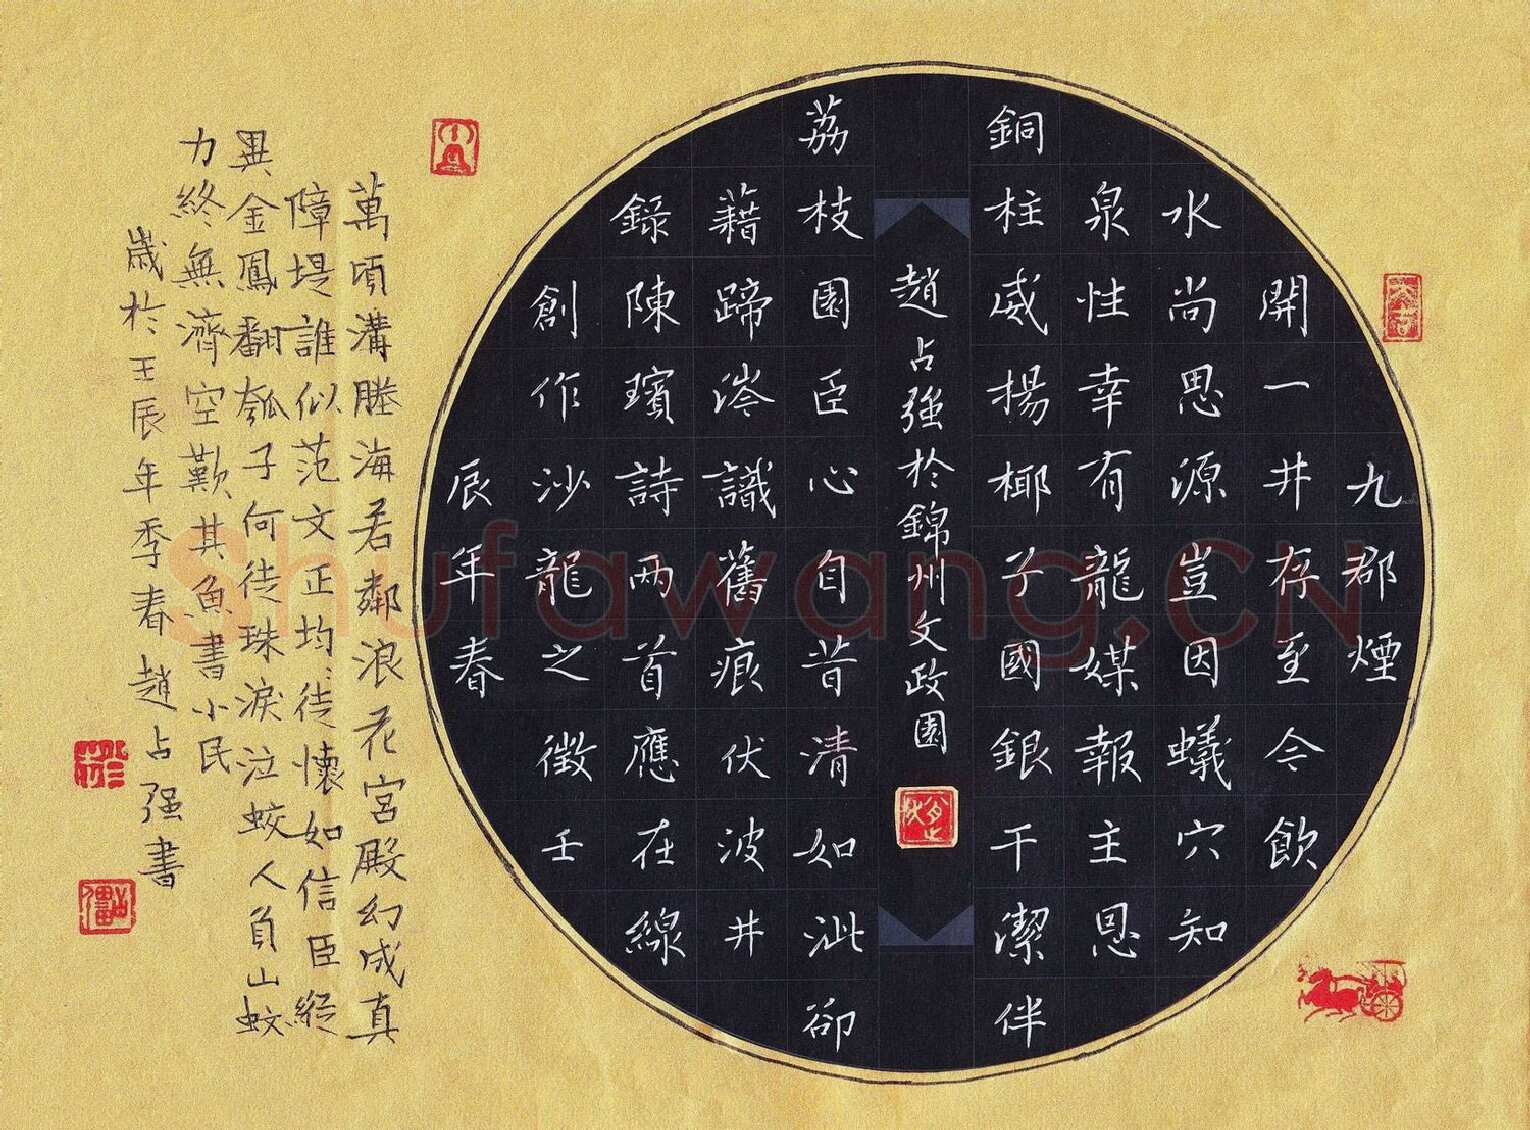 九郡煙
開一井存至今飲
水尚思源豈因蟻穴知
泉性幸有龍媒報主恩
銅柱威揚椰子國銀干潔伴
趙占強於錦州文政園
荔枝園臣心自昔清如泚卻
藉蹄涔識舊痕伏波井
錄陳璸詩兩首應在線
創作沙龍之徵壬
辰年春
萬頃溝塍海若鄰浪花宮殿幻成真
障堤誰似范文正均徒懷如信臣縱
異金鳳翻瓠子何徒珠淚泣蛟人負山蚊
力終無濟空歎其魚書小民
歲於壬辰年季春趙占强書
大吉
Shufawang.CN